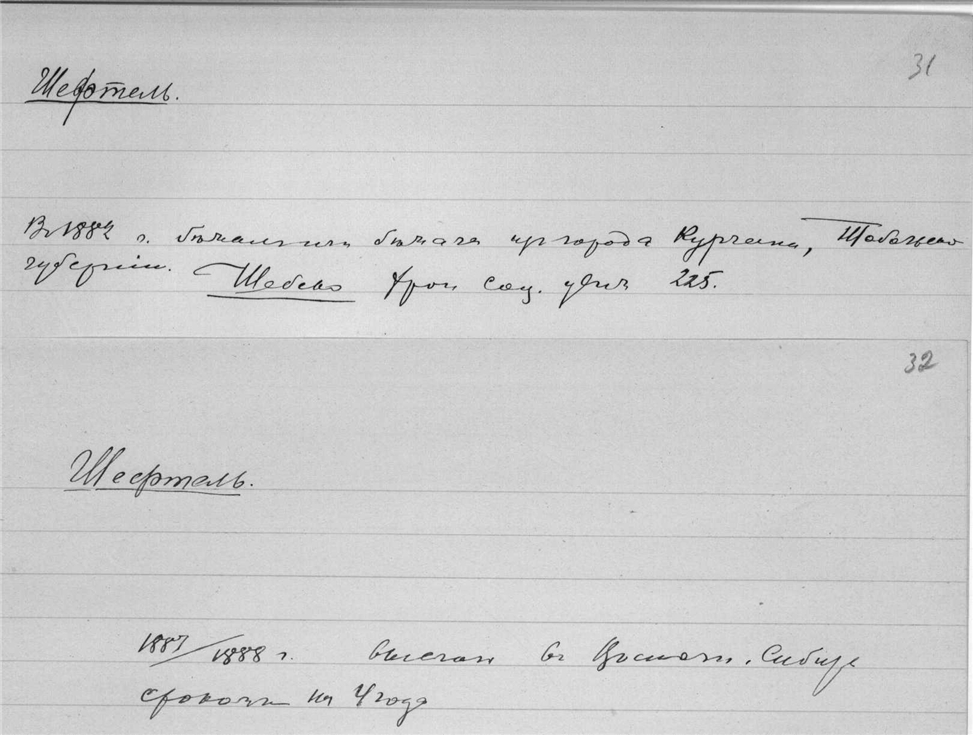 31
Шефтель.
В 1882 г. бежала из города Кургана, Тобольско
губернии. Шебеко Хрон соц. движ 225.
32
Шефтель.
1887/1888 г. выслан в Восточн. Сибирь
сроком на 4 года